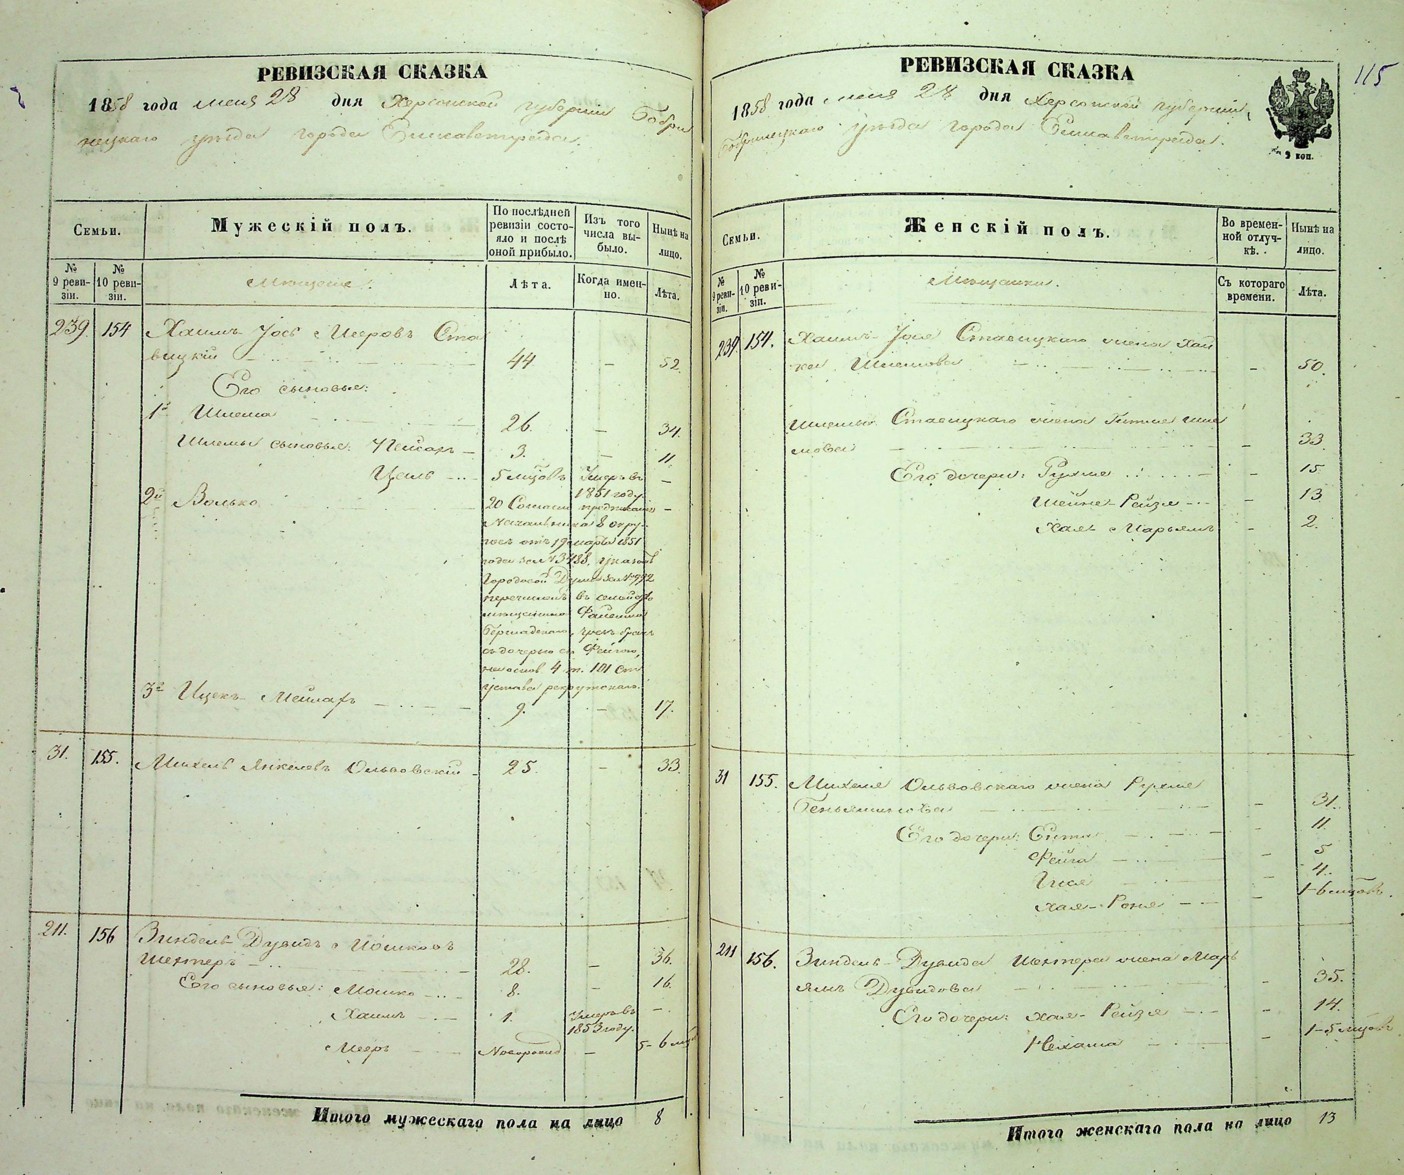 РЕВИЗСКАЯ СКАЗКА
1858 года мая 28 дня Херсонской губернии Бобри
нецкаго уезда города Елисаветграда.
Семьи.
Мужескій полъ.
По послѣдней ревизіи состояло и послѣ оной прибыло.
Изъ того числа выбыло.
Нынѣ на лицо.
№ 9 ревизіи.
№ 10 ревизіи.
Мещане.
Лѣта.
Когда именно.
Лѣта.
239. 154 Хаимъ Іось Мееровъ Ста
вицкій 44 — 52.
Его сыновья:
1й Шлема 26. — 34.
Шлемы сыновья: Пейсахъ 3. — 11
Цаль 5 мцовъ Умеръ въ —
1851 году
2й Волько 20 Согласно —
отъ 19 1851
года за № 13488,
Городской Думы за № 992
перечисленъ въ семейство
мещанина
съ дочерью его Фейгою,
на основ 4 т. 101 ст
устава рекрутскаго.
3й Ицекъ Мейлахъ 9. — 17.
31. 155. Михель Янкелевъ Ольшовскій 25. — 33.
211. 156 Зиндель Дувидъ Мошковъ
Шехтеръ 28. — 36.
Его сыновья: Мошко 8. — 16.
Хаимъ 1. Умеръ въ —
1853 году.
Мееръ Новорожд — 5-6 мцв
Итого мужескаго пола на лицо 8
115
РЕВИЗСКАЯ СКАЗКА
1858 года мая 28 дня Херсонской губерніи,
Бобринецкаго уѣзда города Елисаветграда.
9 коп.
Семьи.
Женскій полъ.
Во временной отлучкѣ.
Нынѣ на лицо.
№ 9 ревизіи.
№ 10 ревизіи.
Мещанки.
Съ котораго времени.
Лѣта.
239. 154. Хаимъ Іося Ставицкаго жена Хай
ка Шлемова — 50.
Шлемы Ставицкаго жена Гитля Шле
мова — 33
Его дочери: Рухля — 15
Шейне-Рейзя — 13
Хая Марьямъ — 2.
31 155. Михеля Ольшовскаго жена Рухля
Беньяминова — 31.
Его дочери: Сита — 11
Фейга — 5
Гися — 4.
Хая-Роня — 1-6 мцовъ.
211 156. Зиндель-Дувида Шехтера жена Марь
ямъ Дувидова — 35.
Его дочери Хая-Рейзя — 14.
Нехама — 1-5 мцовъ
Итого женскаго пола на лицо 13